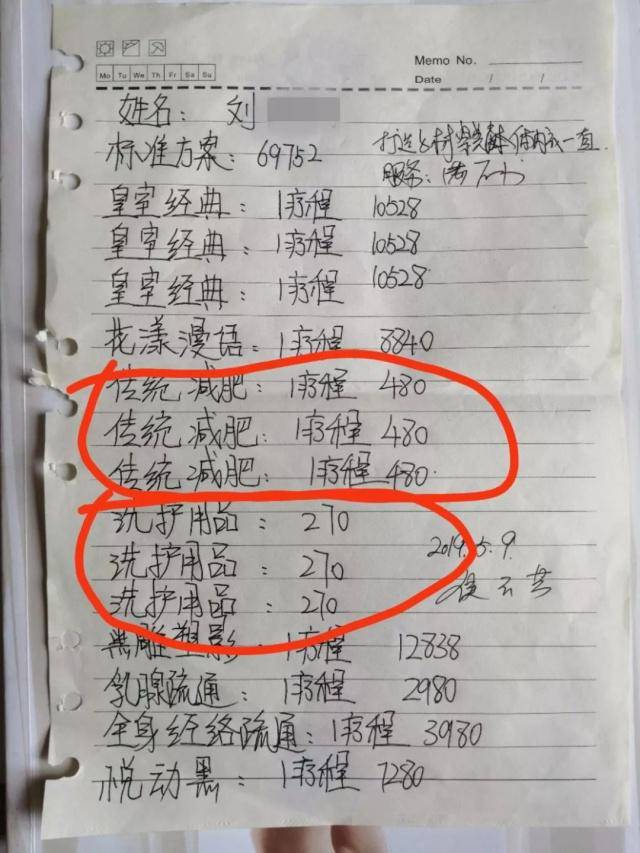 Memo No.
Mo Tu We Th Fr Sa Su
Date / /
姓名: 刘
标准方案: 69752
打造身材
一直
服务:
皇室经典: 1疗程 10528
皇室经典: 1疗程 10528
皇室经典: 1疗程 10528
花漾漫语: 1疗程 8840
传统减肥: 1疗程 480
传统减肥: 1疗程 480
传统减肥: 1疗程 480
洗护用品: 270
洗护用品: 270
洗护用品: 270
2019.5.9.
雕塑影: 1疗程 12838
乳腺疏通: 1疗程 2980
全身经络疏通: 1疗程 3980
悦动黑: 1疗程 7280